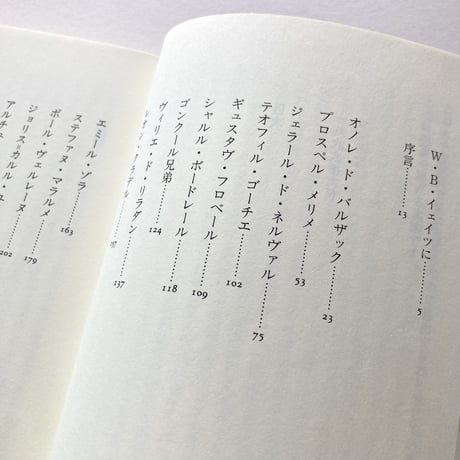 W・B・イェイツに……5
序言……13
オノレ・ド・バルザック……23
プロスペル・メリメ……53
ジェラール・ド・ネルヴァル……75
テオフィル・ゴーチエ……102
ギュスタヴ・フロベール……109
シャルル・ボードレール……118
ゴンクール兄弟……124
ヴィリエ・ド・リラダン……137
エミール・ゾラ……163
ステファヌ・マラルメ……179
ポール・ヴェルレーヌ……202
ジョリス゠カルル・ユ
アルチュ